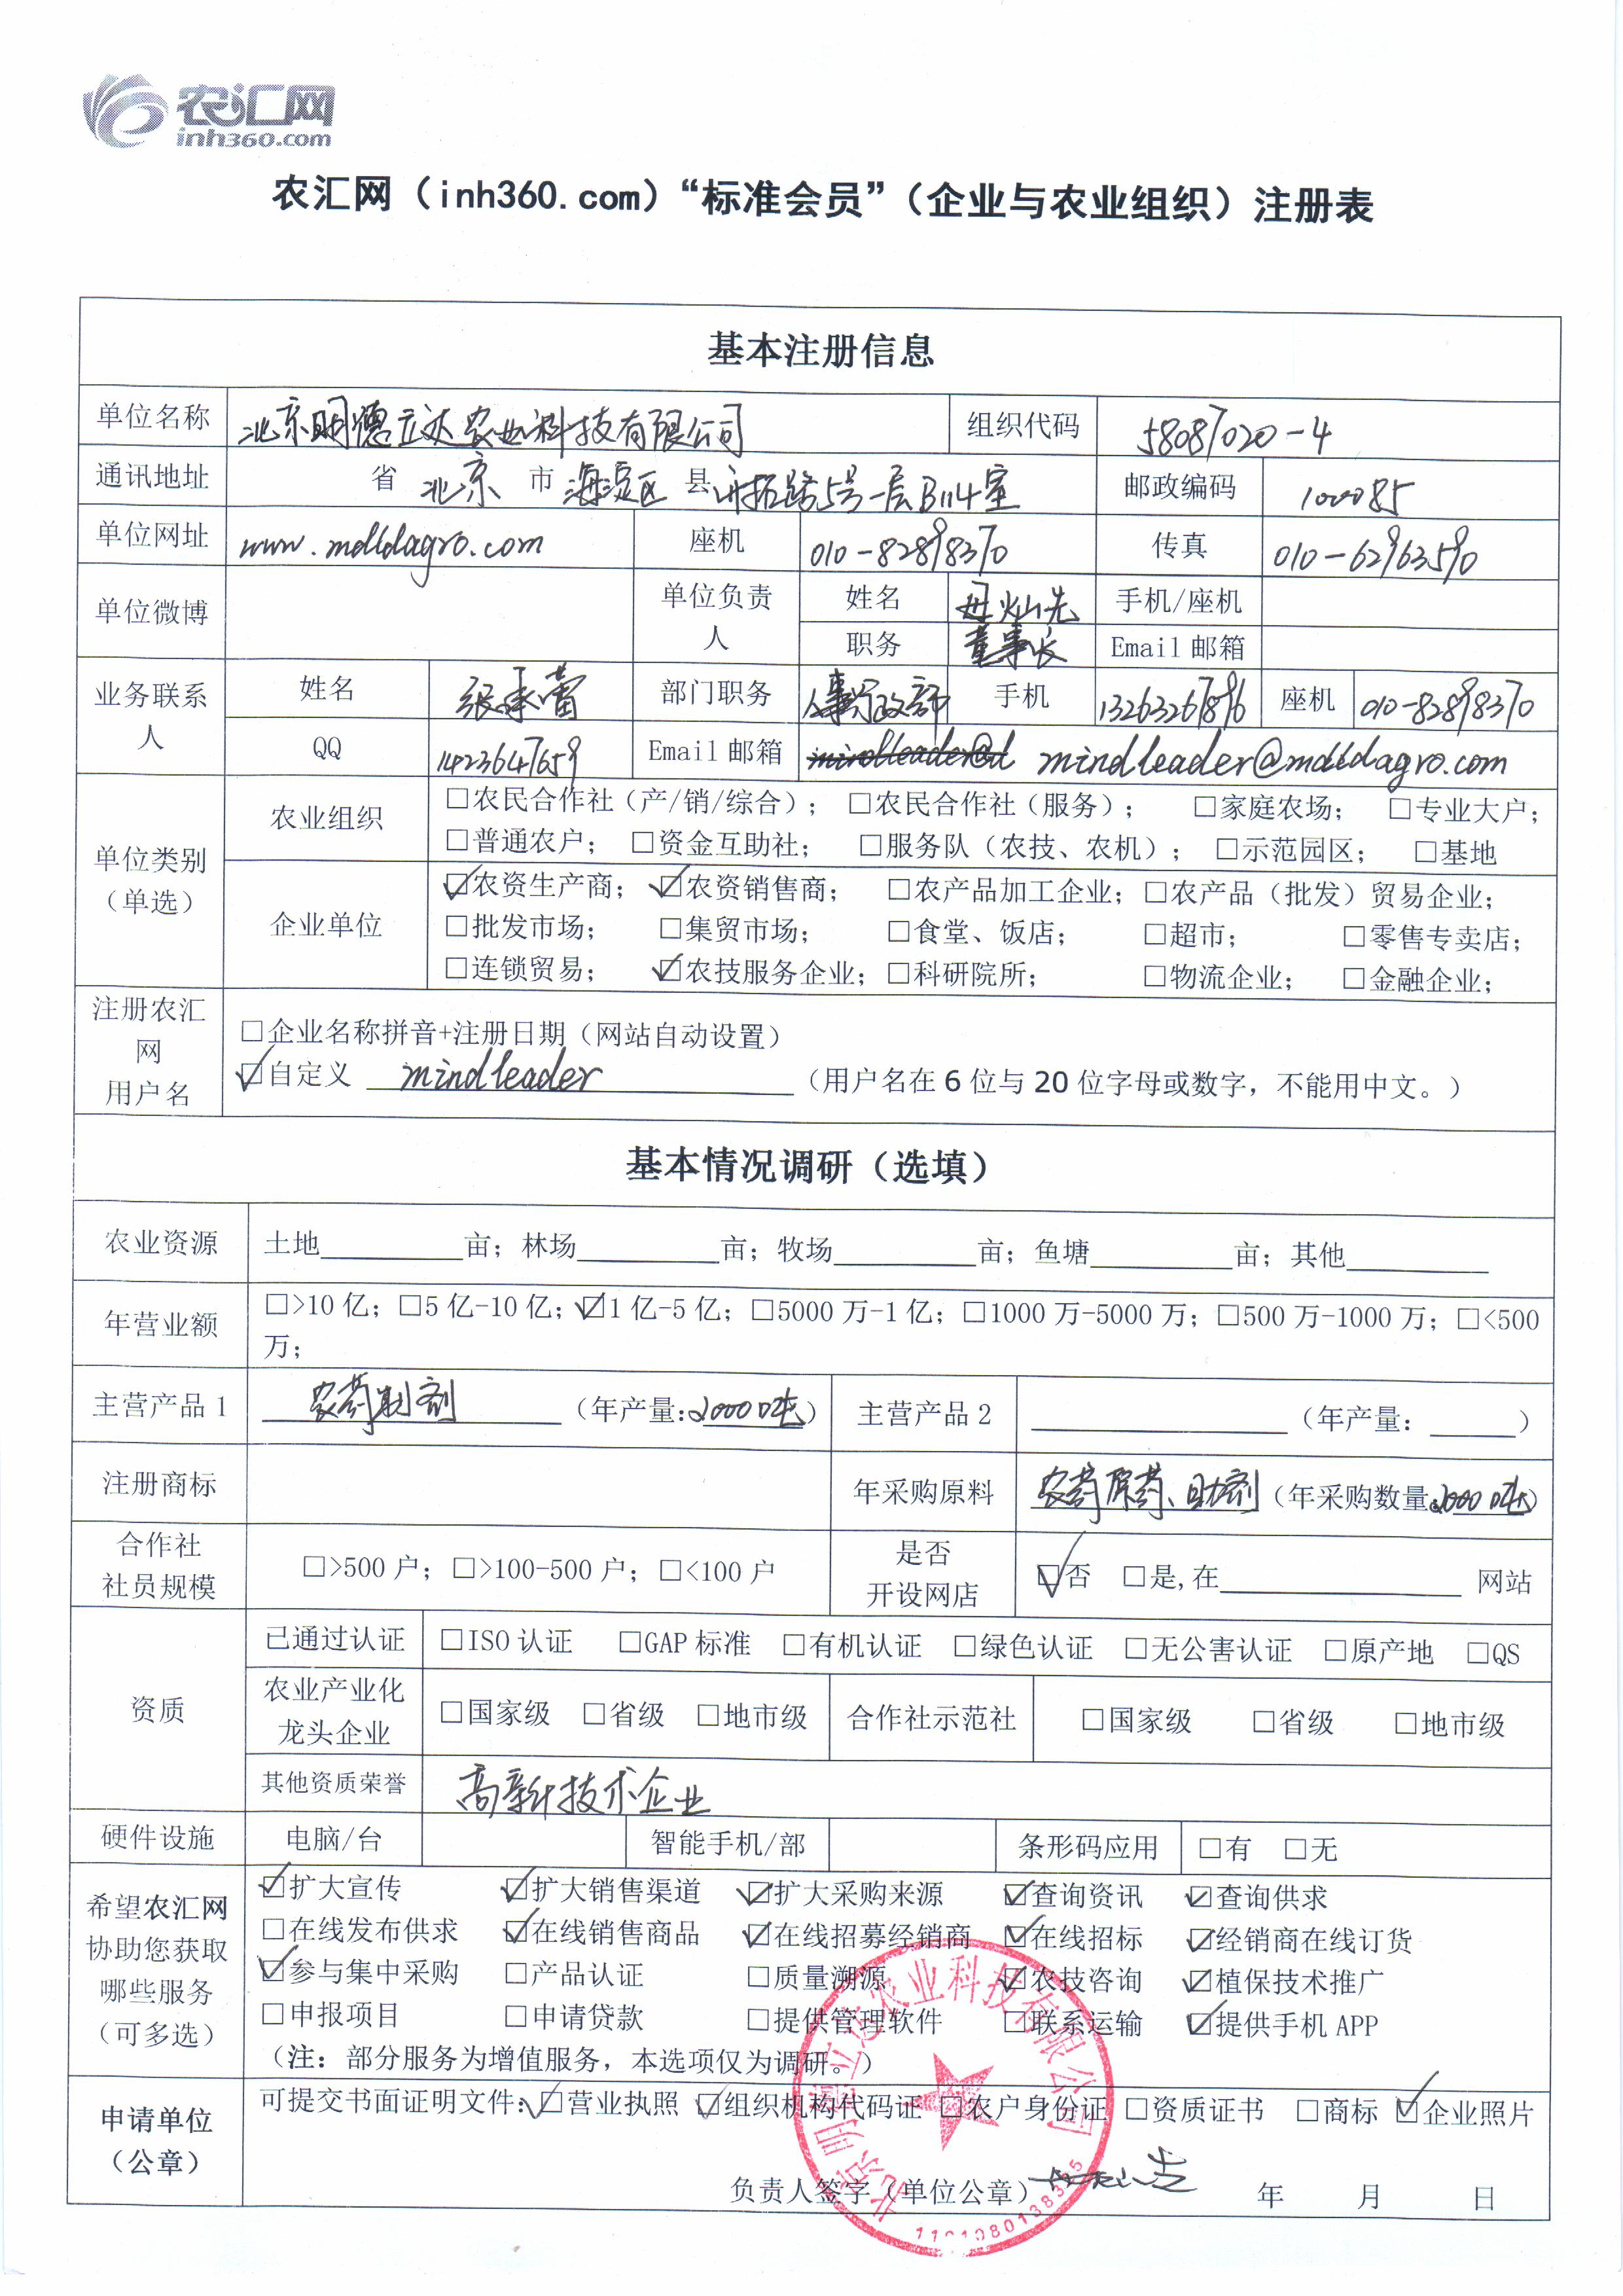 农汇网
inh360.com
农汇网（inh360.com）“标准会员”（企业与农业组织）注册表
基本注册信息
单位名称 北京明德立达农业科技有限公司 组织代码 58087020-4
通讯地址 省 北京 市 海淀区 县 开拓路5号一层B114室 邮政编码 100085
单位网址 www.mdldagro.com 座机 010-82898370 传真 010-62963590
单位微博 单位负责人 姓名 毋灿先 手机/座机
职务 董事长 Email 邮箱
业务联系人 姓名 张承蕾 部门职务 人事行政部 手机 13263267896 座机 010-82898370
QQ 1423647659 Email 邮箱 mindleader@d mindleader@mdldagro.com
单位类别（单选） 农业组织 □农民合作社（产/销/综合）； □农民合作社（服务）； □家庭农场； □专业大户；
□普通农户； □资金互助社； □服务队（农技、农机）； □示范园区； □基地
企业单位 ☑农资生产商； ☑农资销售商； □农产品加工企业；□农产品（批发）贸易企业；
□批发市场； □集贸市场； □食堂、饭店； □超市； □零售专卖店；
□连锁贸易； ☑农技服务企业；□科研院所； □物流企业； □金融企业；
注册农汇网用户名 □企业名称拼音+注册日期（网站自动设置）
☑自定义 mindleader （用户名在 6 位与 20 位字母或数字，不能用中文。）
基本情况调研（选填）
农业资源 土地____亩；林场____亩；牧场____亩；鱼塘____亩；其他____
年营业额 □>10 亿；□5 亿-10 亿；☑1 亿-5 亿；□5000 万-1 亿；□1000 万-5000 万；□500 万-1000 万；□<500
万；
主营产品 1 农药制剂 （年产量：2000吨） 主营产品 2 ____（年产量：____）
注册商标 年采购原料 农药原药、助剂（年采购数量：2000吨）
合作社社员规模 □>500 户；□>100-500 户；□<100 户 是否开设网店 ☑否 □是,在____网站
资质 已通过认证 □ISO 认证 □GAP 标准 □有机认证 □绿色认证 □无公害认证 □原产地 □QS
农业产业化龙头企业 □国家级 □省级 □地市级 合作社示范社 □国家级 □省级 □地市级
其他资质荣誉 高新技术企业
硬件设施 电脑/台 智能手机/部 条形码应用 □有 □无
希望农汇网协助您获取哪些服务（可多选） ☑扩大宣传 ☑扩大销售渠道 ☑扩大采购来源 ☑查询资讯 ☑查询供求
□在线发布供求 ☑在线销售商品 ☑在线招募经销商 ☑在线招标 ☑经销商在线订货
☑参与集中采购 □产品认证 □质量溯源 ☑农技咨询 ☑植保技术推广
□申报项目 □申请贷款 □提供管理软件 □联系运输 ☑提供手机 APP
（注：部分服务为增值服务，本选项仅为调研。）
申请单位（公章） 可提交书面证明文件：☑营业执照 ☑组织机构代码证 □农户身份证 □资质证书 □商标 ☑企业照片
负责人签字（单位公章） 年 月 日
北京明德立达农业科技有限公司